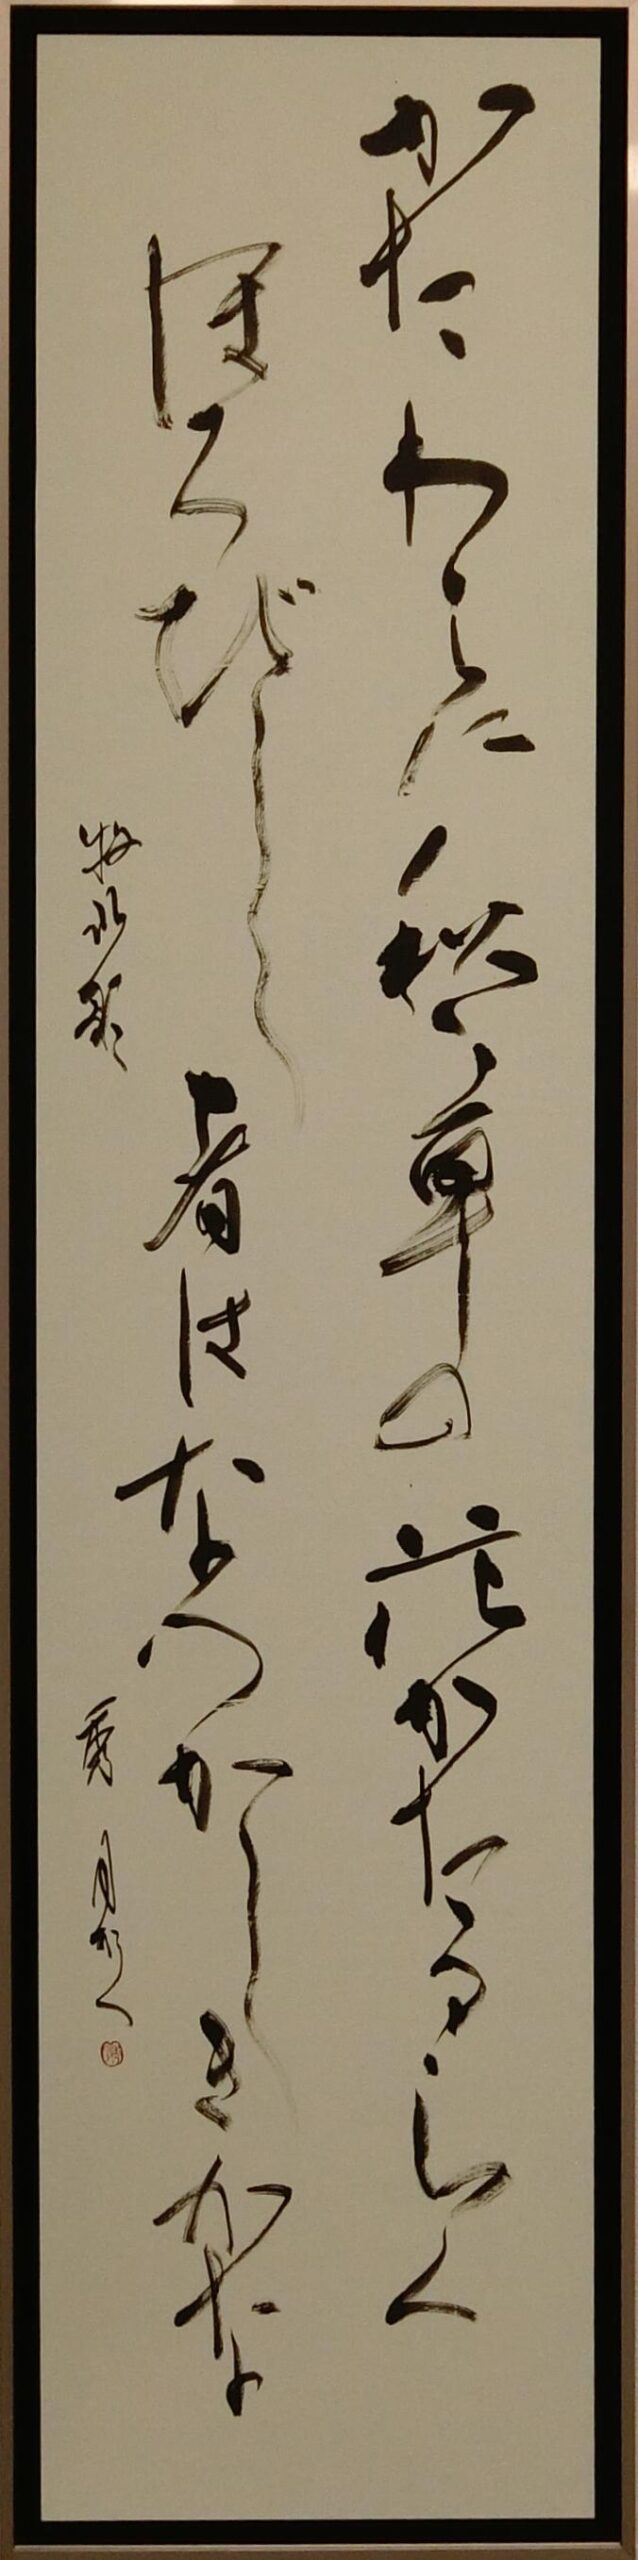 かたわらに秋草の花かたるらく
ほろびしものはなつかしきかな
牧水歌
秀月かく